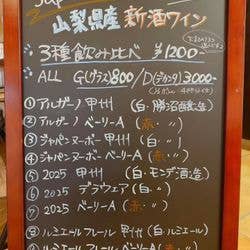 山梨県産 新酒ワイン
3種飲み比べ ¥1200
ALL G(グラス)800/D(デカンタ)3000-
① アルガーノ 甲州 (白・勝沼醸造)
② アルガーノ ベーリーA (赤・〃)
③ ジャパンヌーボー 甲州 (白・〃)
④ ジャパンヌーボー ベーリーA (赤・〃)
⑤ 2025 甲州 (白・モンデ酒造)
⑥ 2025 デラウェア (白・〃)
⑦ 2025 ベーリーA (赤・〃)
⑧ ルミエールフレール 甲州 (白・ルミエール)
ルミエール フレール ベーリーA (赤・〃)